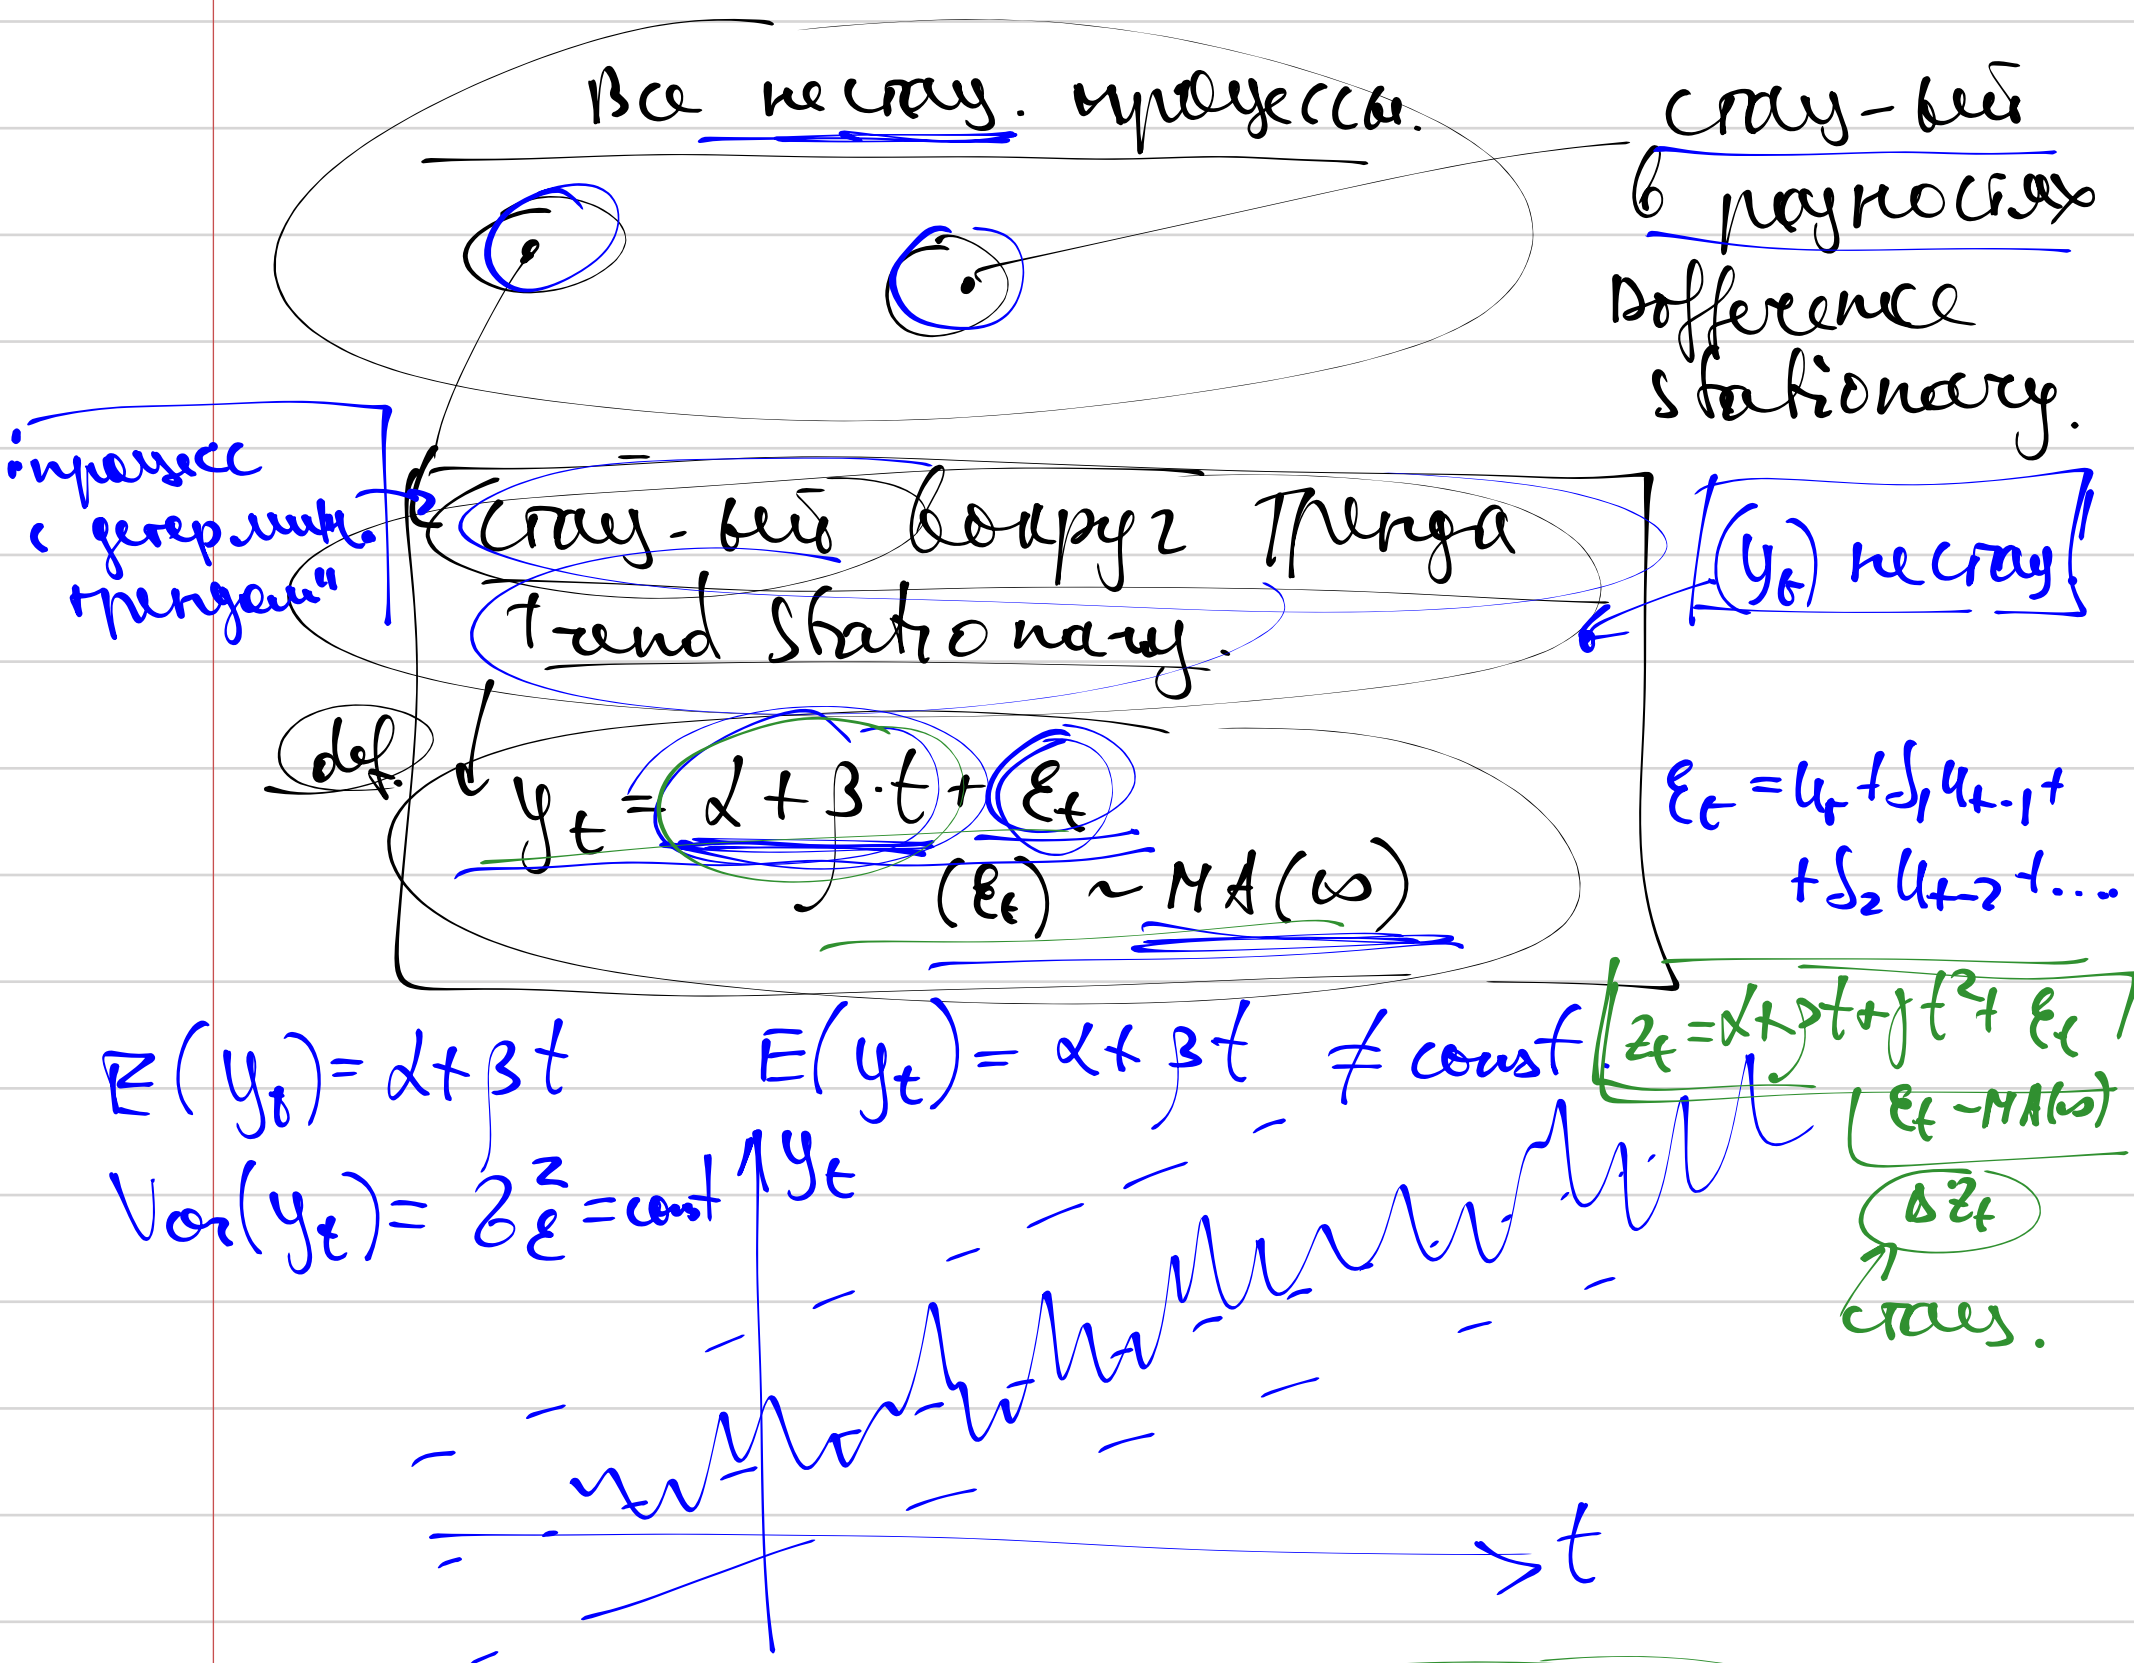 Все нестац. процессы.
стац-ый
в разностях
Difference
stationary.
"процесс
с детермин.
трендом"
Стац-ый вокруг тренда
trend stationary.
(y_t) нестац
def.
y_t = α + β·t + ε_t
(ε_t) ~ MA(∞)
ε_t = u_t + δ_1 u_{t-1} +
+ δ_2 u_{t-2} + ...
E(y_t) = α + βt
E(y_t) = α + βt ≠ const
z_t = α + βt + γt² + ε_t
ε_t ~ MA(∞)
Var(y_t) = σ²_ε = const
y_t
Δz_t
стац.
t